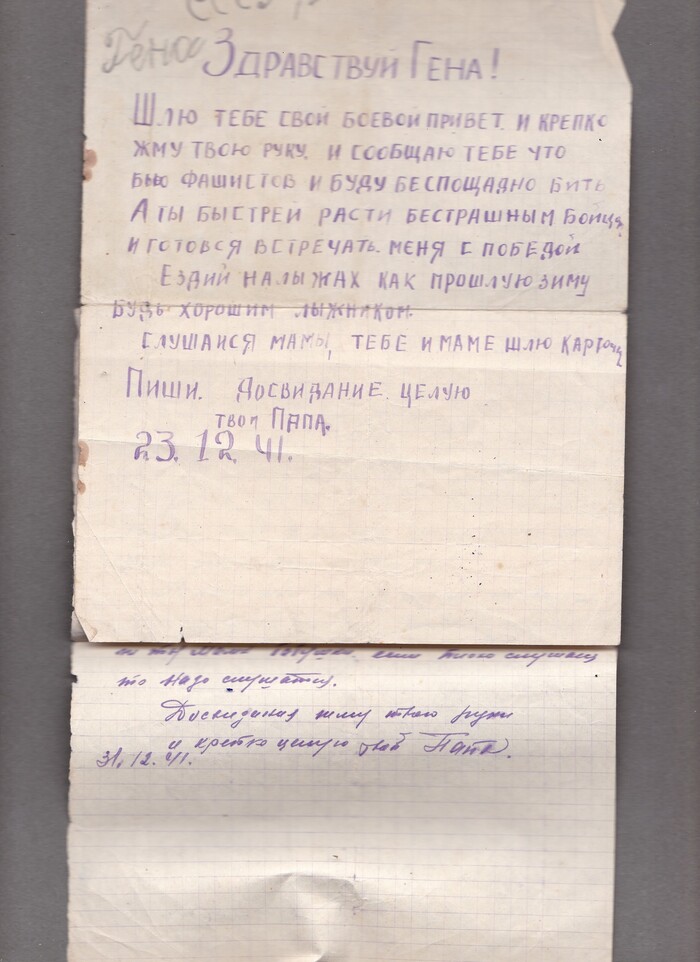 СССР
Гена
ЗДРАВСТВУЙ ГЕНА!
ШЛЮ ТЕБЕ СВОЙ БОЕВОЙ ПРИВЕТ. И КРЕПКО
ЖМУ ТВОЮ РУКУ. И СООБЩАЮ ТЕБЕ ЧТО
БЬЮ ФАШИСТОВ И БУДУ БЕСПОЩАДНО БИТЬ
А ТЫ БЫСТРЕЙ РАСТИ БЕСТРАШНЫМ БОЙЦЯ
И ГОТОВСЯ ВСТРЕЧАТЬ МЕНЯ С ПОБЕДОЙ
ЕЗДИЙ НА ЛЫЖАХ КАК ПРОШЛУЮ ЗИМУ
БУДЬ ХОРОШИМ ЛЫЖНИКОМ.
СЛУШАЙСЯ МАМЫ, ТЕБЕ И МАМЕ ШЛЮ КАРТОЧЦ
ПИШИ. ДОСВИДАНИЕ ЦЕЛУЮ
ТВОЙ ПАПА.
23.12.41.
то надо слушатся.
Досвидания жму твою руку
и крепко целую твой Папа.
31.12.41.